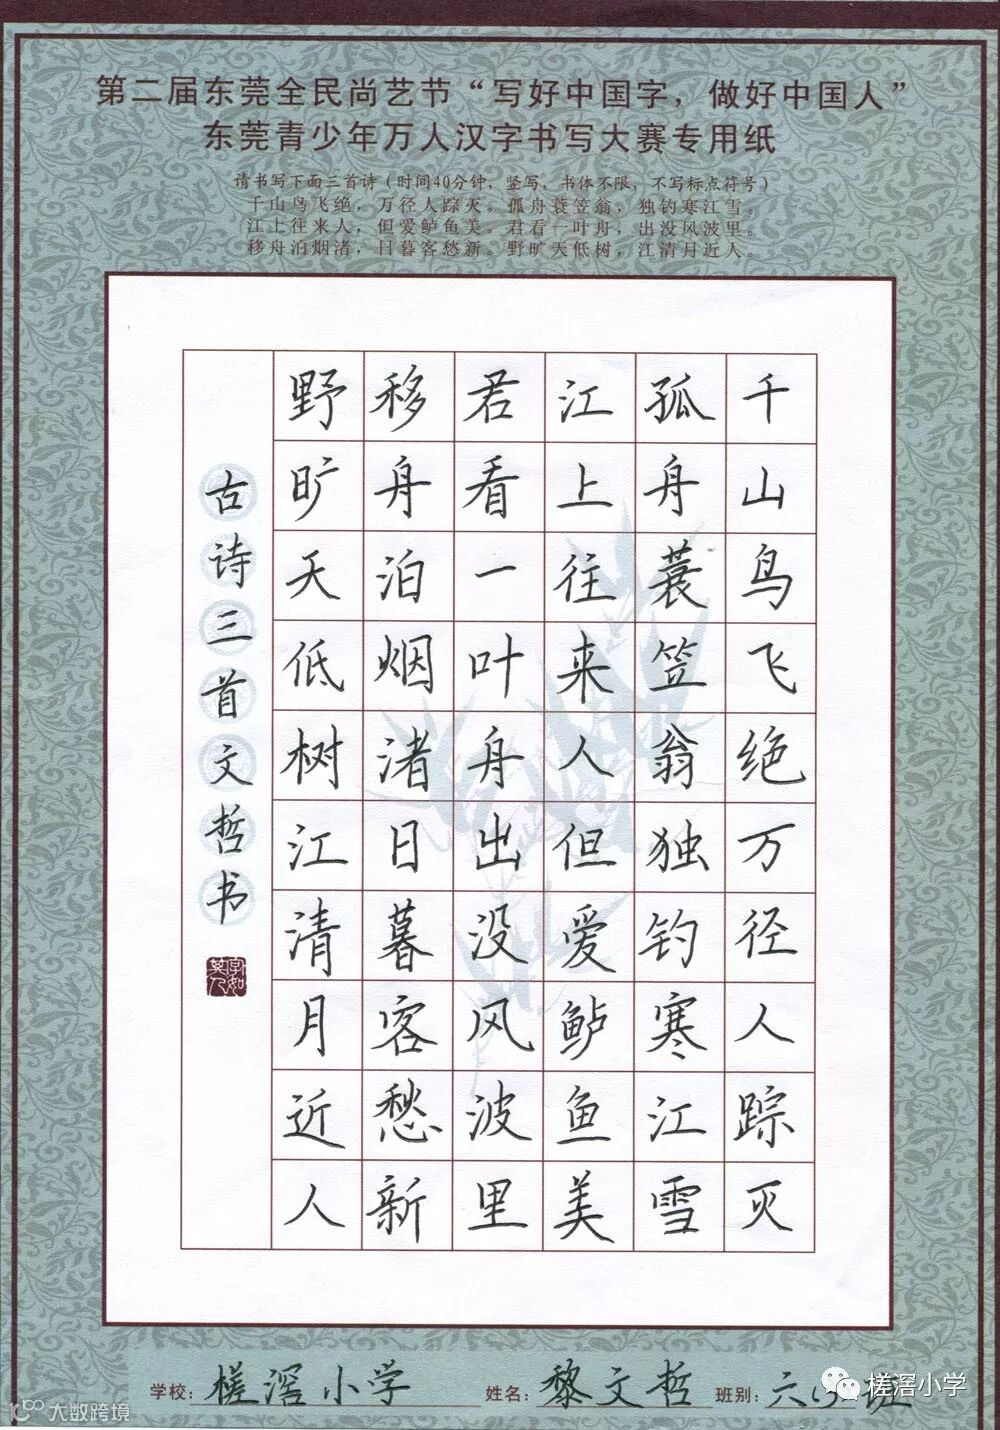 第二届东莞全民尚艺节“写好中国字，做好中国人”
东莞青少年万人汉字书写大赛专用纸
请书写下面三首诗（时间40分钟，竖写，书体不限，不写标点符号）
千山鸟飞绝，万径人踪灭。孤舟蓑笠翁，独钓寒江雪。
江上往来人，但爱鲈鱼美。君看一叶舟，出没风波里。
移舟泊烟渚，日暮客愁新。野旷天低树，江清月近人。
千山鸟飞绝万径人踪灭
孤舟蓑笠翁独钓寒江雪
江上往来人但爱鲈鱼美
君看一叶舟出没风波里
移舟泊烟渚日暮客愁新
野旷天低树江清月近人
古诗三首文哲书
学校：槎滘小学 姓名：黎文哲 班别：六 班
槎滘小学
大数跨境